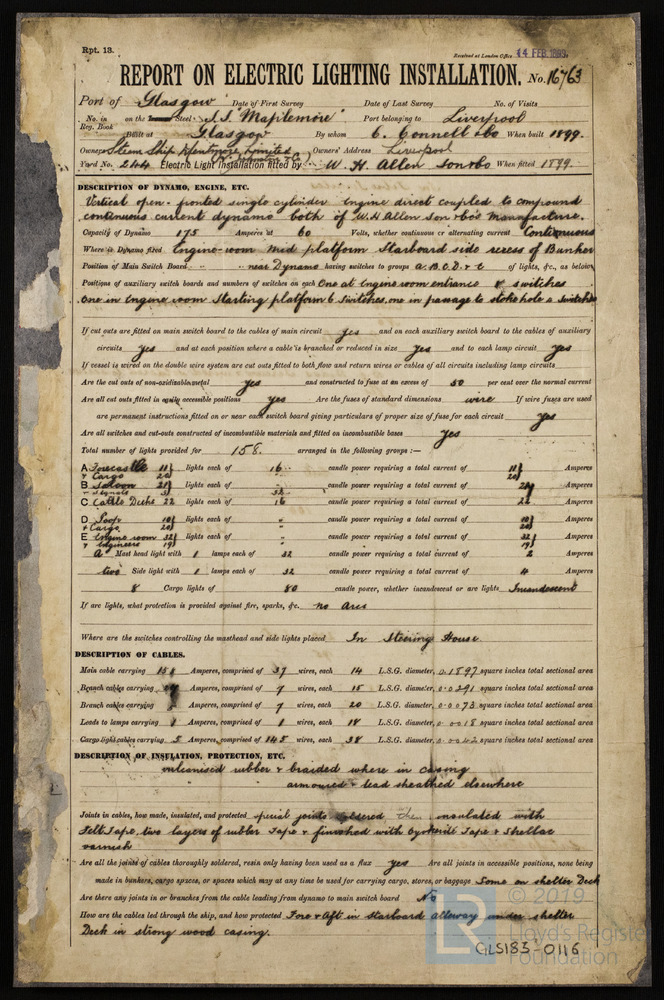 Rpt. 13.
Received at London Office 14 FEB 1899
REPORT ON ELECTRIC LIGHTING INSTALLATION. No. 16763
Port of Glasgow Date of First Survey Date of Last Survey No. of Visits
No. in Reg. Book on the Steel S.S. "Maplemore" Port belonging to Liverpool
Built at Glasgow By whom C. Connell & Co When built 1899
Owners Steam Ship Limited Owners' Address Liverpool
Yard No. 244 Electric Light Installation fitted by W. H. Allen Son & Co When fitted 1899
DESCRIPTION OF DYNAMO, ENGINE, ETC.
Vertical open-fronted single cylinder engine direct coupled to compound
continuous current dynamo both of W.H Allen Son & Co's manufacture.
Capacity of Dynamo 175 Amperes at 60 Volts, whether continuous or alternating current Continuous
Where is Dynamo fixed Engine-room mid platform Starboard side recess of Bunker
Position of Main Switch Board near Dynamo having switches to groups A. B. C. D. & E of lights, &c., as below
Positions of auxiliary switch boards and numbers of switches on each One at Engine room entrance 8 switches
one in Engine room Starting platform 6 Switches, one in passage to stokehole 2 Switches
If cut outs are fitted on main switch board to the cables of main circuit yes and on each auxiliary switch board to the cables of auxiliary
circuits yes and at each position where a cable is branched or reduced in size yes and to each lamp circuit yes
If vessel is wired on the double wire system are cut outs fitted to both flow and return wires or cables of all circuits including lamp circuits
Are the cut outs of non-oxidizable metal yes and constructed to fuse at an excess of 50 per cent over the normal current
Are all cut outs fitted in easily accessible positions yes Are the fuses of standard dimensions wire If wire fuses are used
are permanent instructions fitted on or near each switch board giving particulars of proper size of fuse for each circuit yes
Are all switches and cut-outs constructed of incombustible materials and fitted on incombustible bases yes
Total number of lights provided for 158. arranged in the following groups :—
A Forecastle 11 lights each of 16 candle power requiring a total current of 11 Amperes
& Cargo 20 20
B Saloon 21 lights each of " candle power requiring a total current of Amperes
& Signals 3 32
C Cattle Decks 22 lights each of 16 candle power requiring a total current of 22 Amperes
D Poop 10 lights each of " candle power requiring a total current of 10 Amperes
& Cargo 20 20
E Engine room 32 lights each of " candle power requiring a total current of 32 Amperes
& Engineers 19 19
A Mast head light with 1 lamps each of 32 candle power requiring a total current of 2 Amperes
two Side light with 1 lamps each of 32 candle power requiring a total current of 4 Amperes
8 Cargo lights of 80 candle power, whether incandescent or arc lights Incandescent
If arc lights, what protection is provided against fire, sparks, &c. no Arcs
Where are the switches controlling the masthead and side lights placed In Steering House
DESCRIPTION OF CABLES.
Main cable carrying 158 Amperes, comprised of 37 wires, each 14 L.S.G. diameter, 0.1897 square inches total sectional area
Branch cables carrying Amperes, comprised of 7 wires, each 15 L.S.G. diameter, 0.0291 square inches total sectional area
Branch cables carrying Amperes, comprised of 7 wires, each 20 L.S.G. diameter, 0.0073 square inches total sectional area
Leads to lamps carrying 1 Amperes, comprised of 1 wires, each 18 L.S.G. diameter, 0.0018 square inches total sectional area
Cargo light cables carrying 5 Amperes, comprised of 145 wires, each 38 L.S.G. diameter, 0.0042 square inches total sectional area
DESCRIPTION OF INSULATION, PROTECTION, ETC.
vulcanised rubber & braided where in casing
" " armoured & lead sheathed elsewhere
Joints in cables, how made, insulated, and protected special joints soldered then insulated with
Felt Tape, two layers of rubber Tape & finished with Tape & Shellac
varnish
Are all the joints of cables thoroughly soldered, resin only having been used as a flux yes Are all joints in accessible positions, none being
made in bunkers, cargo spaces, or spaces which may at any time be used for carrying cargo, stores, or baggage Some on shelter Deck
Are there any joints in or branches from the cable leading from dynamo to main switch board No
How are the cables led through the ship, and how protected Fore & Aft in starboard alleway under shelter
Deck in strong wood casing.
© 2019
LR Lloyd's Register
Foundation
GLS183-0116